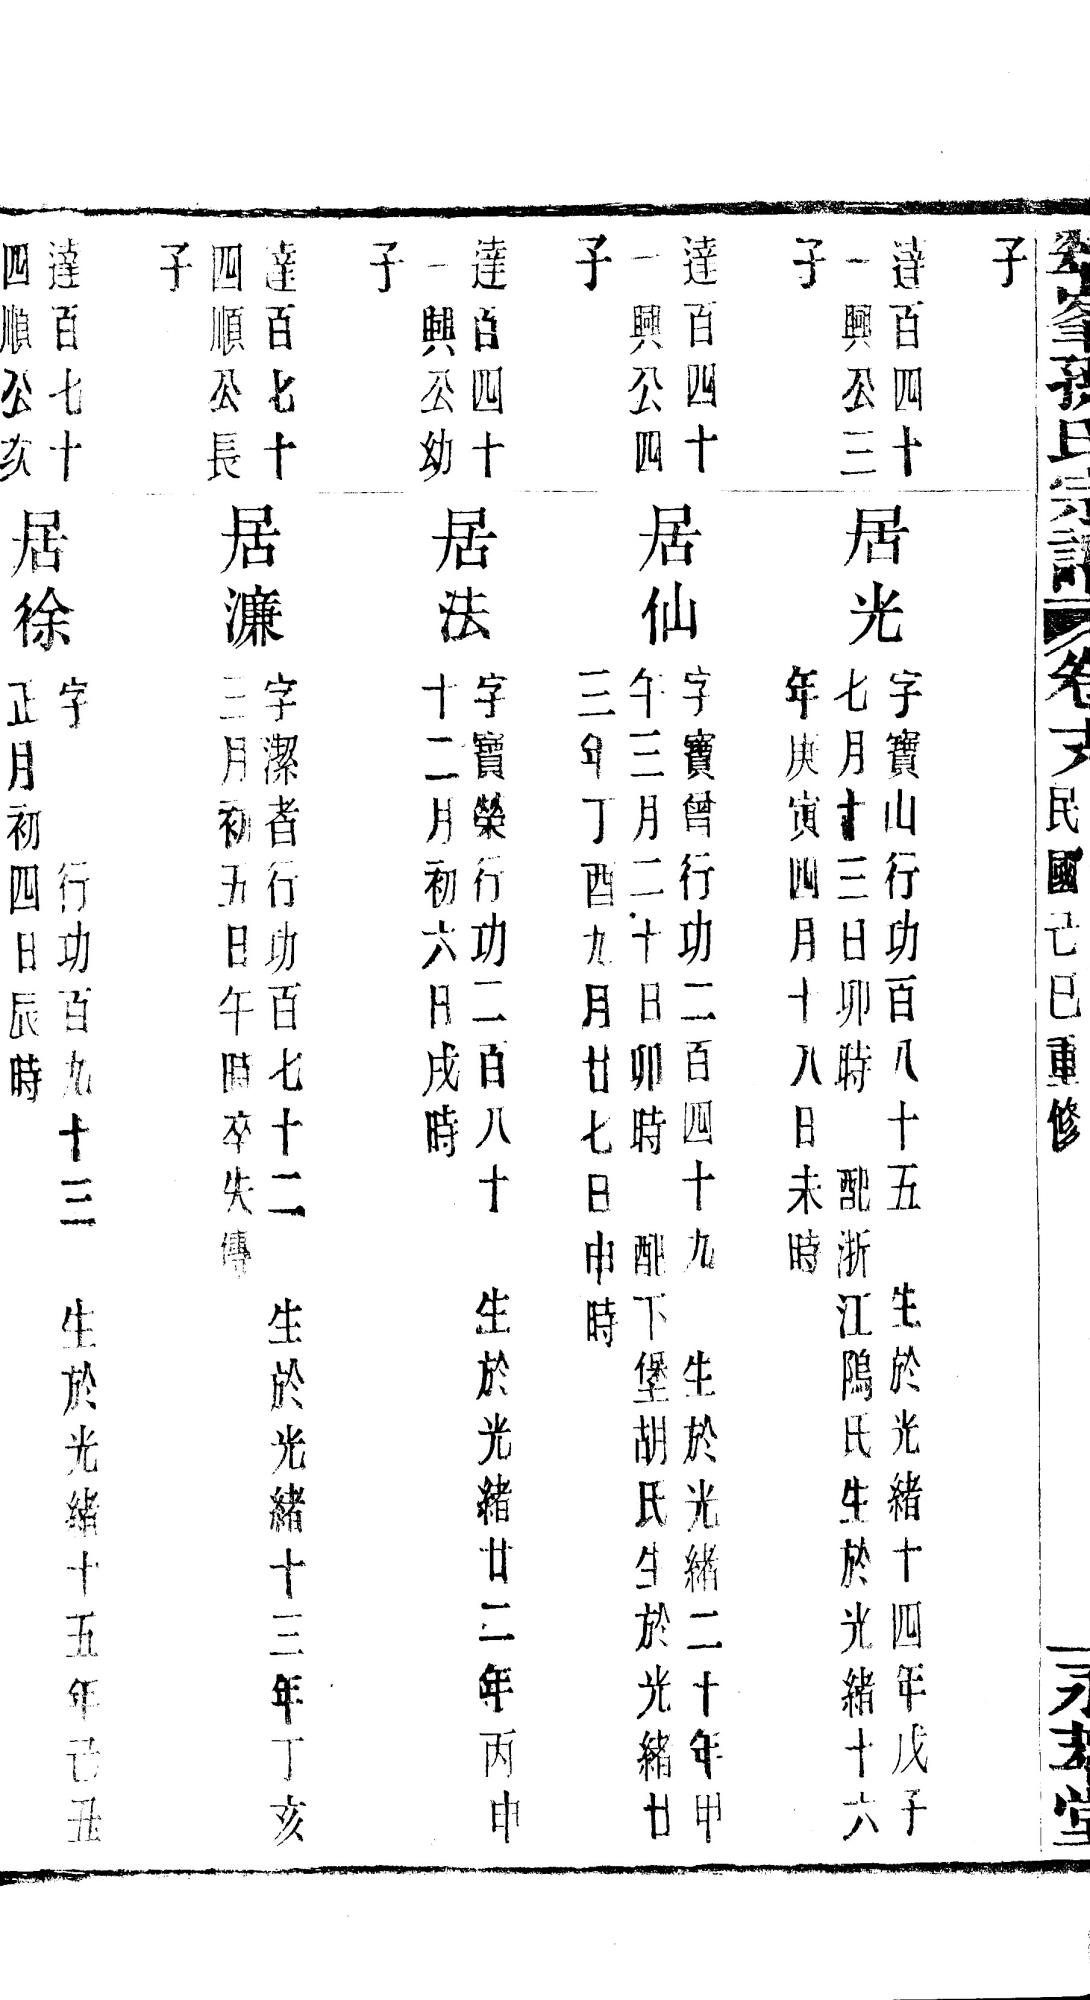 孫氏宗譜
卷
民國己巳重修
堂
子
達百四十
一興公三
子
居光
字寶山行功百八十五 生於光緒十四年戊子
七月十三日卯時 配浙江隖氏生於光緒十六
年庚寅四月十八日未時
達百四十
一興公四
子
居仙
字寶曾行功二百四十九 生於光緒二十年甲
午三月二十日卯時 配下堡胡氏生於光緒廿
三年丁酉九月廿七日申時
達百四十
一興公幼
子
居法
字寶榮行功二百八十 生於光緒廿二年丙申
十二月初六日戌時
達百七十
四順公長
子
居濂
字潔者行功百七十二 生於光緒十三年丁亥
三月初五日午時卒失傳
達百七十
四順公次
居徐
字 行功百九十三 生於光緒十五年己丑
正月初四日辰時